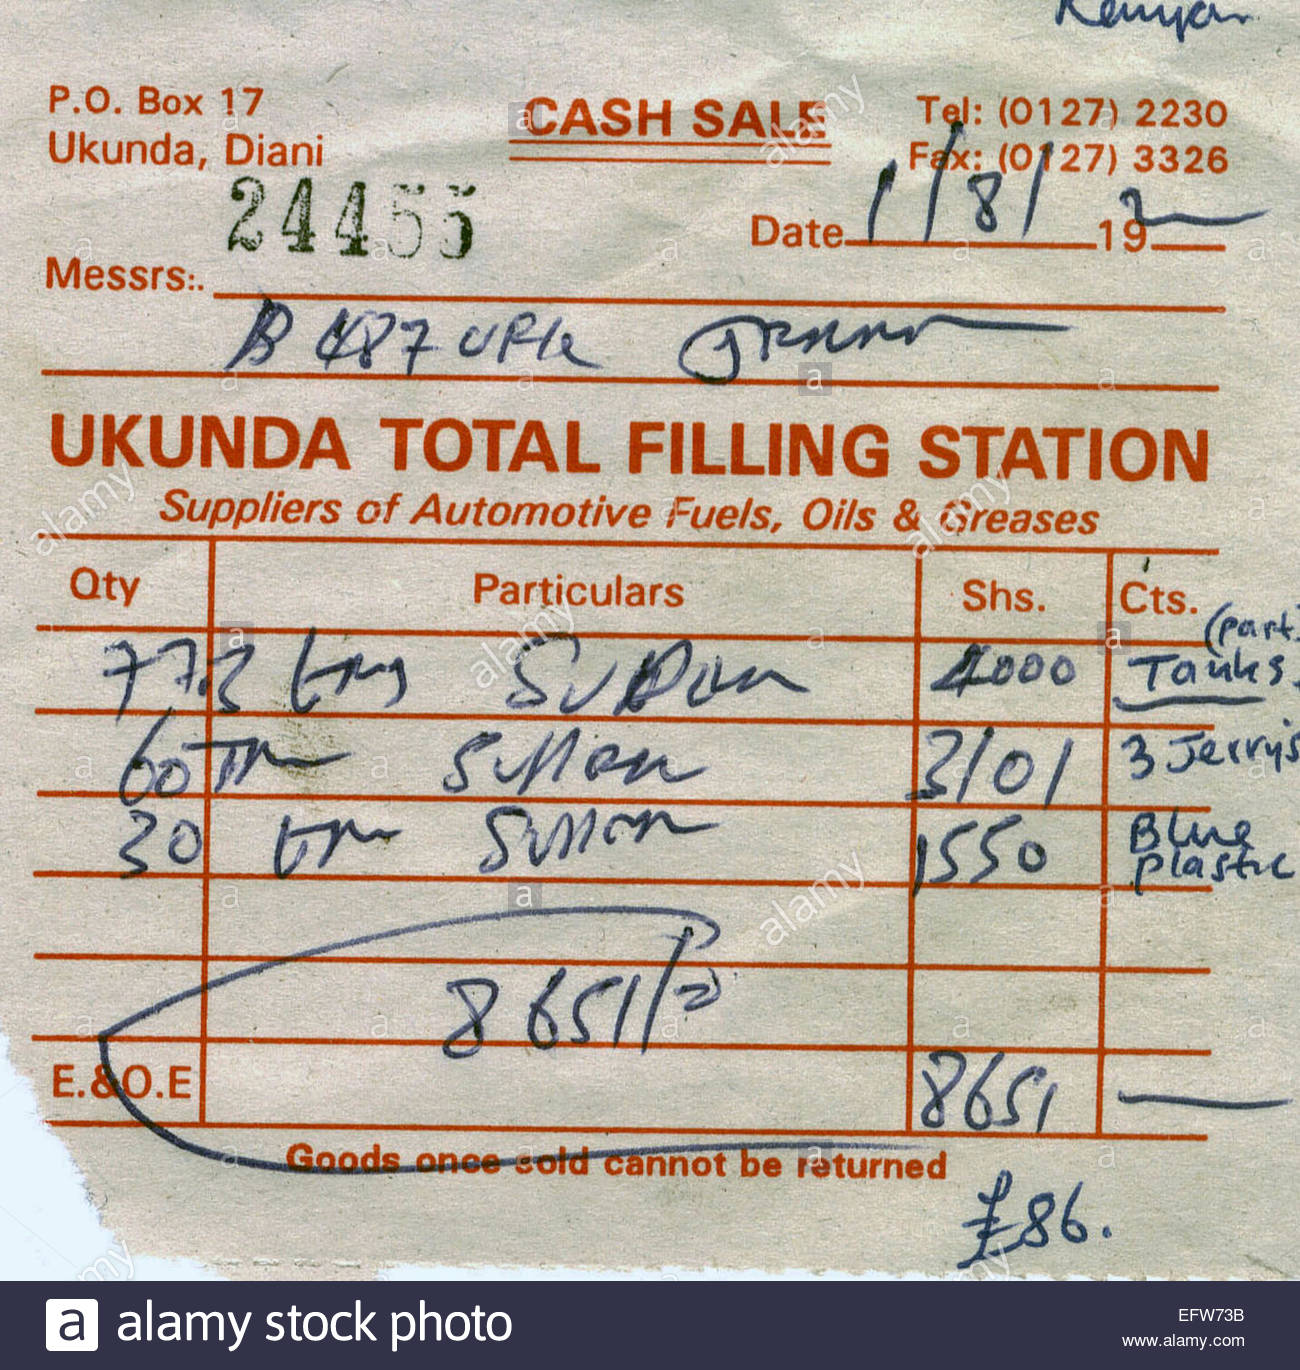 Kenyan
P.O. Box 17
Ukunda, Diani
CASH SALE
Tel: (0127) 2230
Fax: (0127) 3326
24455
Date 1/8/ 19
Messrs:.
UKUNDA TOTAL FILLING STATION
Suppliers of Automotive Fuels, Oils & Greases
Qty Particulars Shs. Cts.
(part)
77.2 4000 Tanks.
60 3101 3 Jerry's
30 1550 Blue
plastic
8651/=
E.&O.E 8651 —
Goods once sold cannot be returned
£86.
a alamy stock photo
EFW73B
www.alamy.com